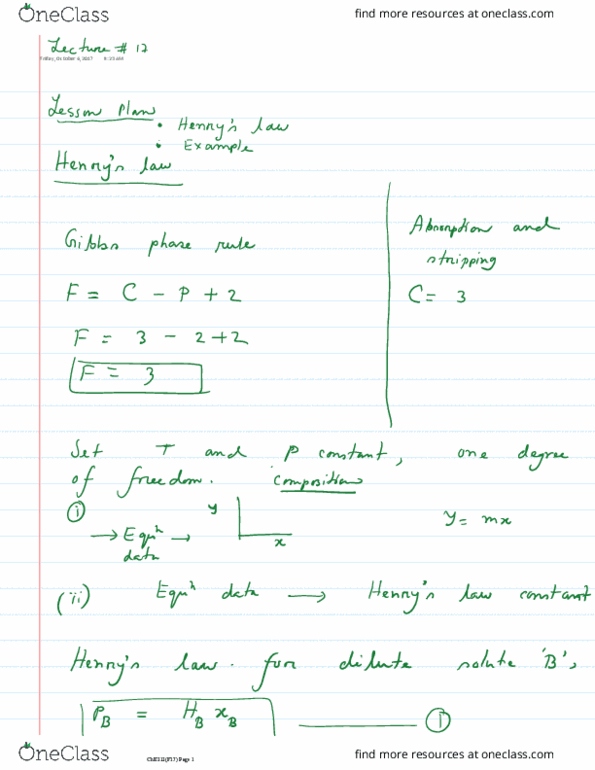 OneClass find more resources at oneclass.com
Lecture # 12
Friday, October 6, 2017
Lesson Plan
• Henry's law
• Example
Henry's law
Gibbs phase rule
F = C - P + 2
F = 3 - 2 + 2
F = 3
Absorption and
stripping
C = 3
Set T and P constant, one degree
of freedom. Composition
(i) → Equⁿ → y
data x
y = mx
(ii) Equⁿ data → Henry's law constant
Henry's law for dilute solute 'B',
P_B = H_B x_B ——— (1)
OneClass find more resources at oneclass.com
Page 1